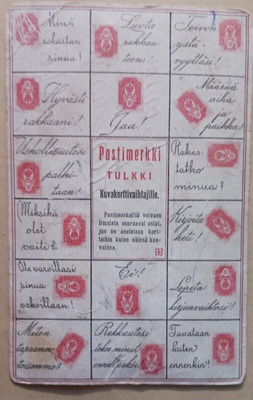 Minä
rakastan
sinua!
Luota
rakkau-
teeni!
Toivon
ystä-
vyyttäsi!
Hyvästi
rakkaani!
Jaa!
Määrää
aika
ja
paikka!
Uskollisuutesi
palki-
taan!
Postimerkki
TULKKI
Kuvakorttivaihtajille.
Postimerkillä voidaan
ilmaista seuraavat asiat,
jos ne asetetaan kort-
teihin kuten näissä kuu-
veissa.
Rakas-
tatko
minua?
Miksikä
olet
vaiti?
Kirjoita
heti!
Ole varoillasi
sinua
vakoillaan!
Ei!
Lopeta
kirjeenvaihtosi!
Miten
tapaamme
toisemme?
Rakkautesi
tekee minut
onnelliseksi
Tavataan
kuten
ennenkin!